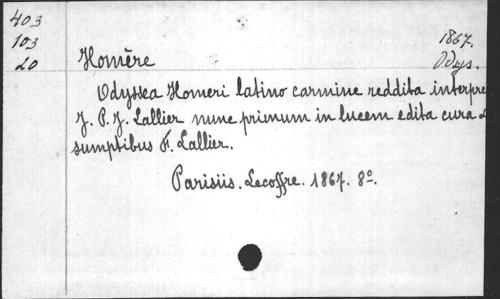 403
103 1867.
20 Homère Odys.
Odyssea Homeri latino carmine reddita interpre
J. P. J. Lallier nunc primum in lucem edita cura
sumptibus F. Lallier.
Parisiis. Lecoffre. 1867. 8º.